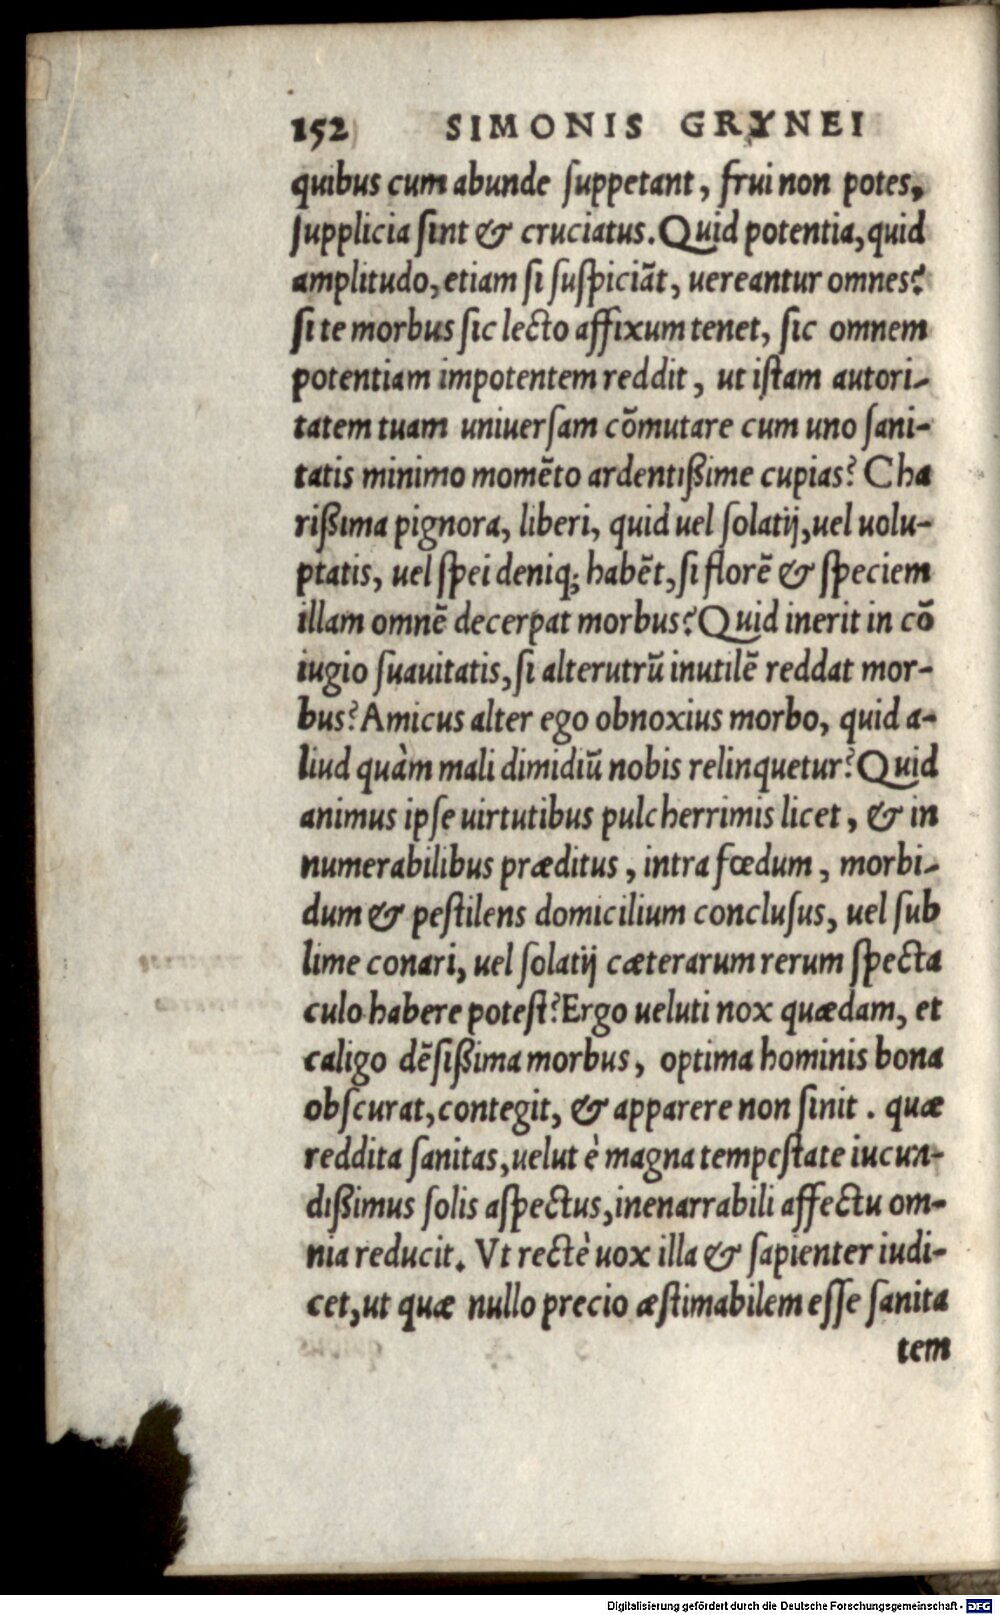 152 SIMONIS GRYNEI
quibus cum abunde ſuppetant, frui non potes,
ſupplicia ſint & cruciatus. Quid potentia, quid
amplitudo, etiam ſi ſuſpiciāt, uereantur omnes?
ſi te morbus ſic lecto affixum tenet, ſic omnem
potentiam impotentem reddit, ut iſtam autori-
tatem tuam uniuerſam cōmutare cum uno ſani-
tatis minimo momēto ardentißime cupias? Cha
rißima pignora, liberi, quid uel ſolatij, uel uolu-
ptatis, uel ſpei deniq; habēt, ſi florē & ſpeciem
illam omnē decerpat morbus? Quid inerit in cō
iugio ſuauitatis, ſi alterutrū inutilē reddat mor-
bus? Amicus alter ego obnoxius morbo, quid a-
liud quàm mali dimidiū nobis relinquetur? Quid
animus ipſe uirtutibus pulcherrimis licet, & in
numerabilibus præditus, intra fœdum, morbi-
dum & peſtilens domicilium concluſus, uel ſub
lime conari, uel ſolatij cæterarum rerum ſpecta
culo habere poteſt? Ergo ueluti nox quædam, et
caligo dēſißima morbus, optima hominis bona
obſcurat, contegit, & apparere non ſinit. quæ
reddita ſanitas, uelut è magna tempeſtate iucun-
dißimus ſolis aſpectus, inenarrabili affectu om-
nia reducit. Vt rectè uox illa & ſapienter iudi-
cet, ut quæ nullo precio æſtimabilem eſſe ſanita
tem
Digitalisierung gefördert durch die Deutsche Forschungsgemeinschaft - DFG